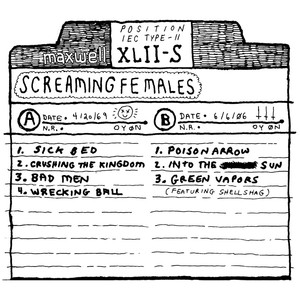 POSITION
IEC TYPE-II
maxwell XLII-S
SCREAMING FEMALES
A DATE • 4/20/69
N.R. • O Y Ø N
B DATE • 6/6/06
N.R. • O Y Ø N
1. SICK BED
2. CRUSHING THE KINGDOM
3. BAD MEN
4. WRECKING BALL
1. POISON ARROW
2. INTO THE SUN
3. GREEN VAPORS
(FEATURING SHELLSHAG)